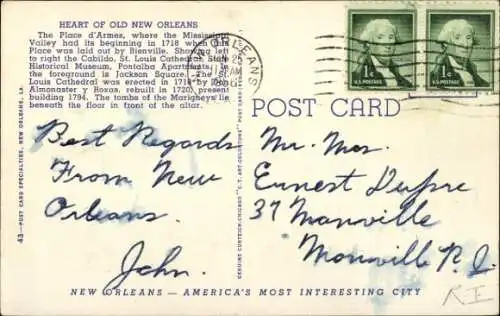 HEART OF OLD NEW ORLEANS
The Place d'Armes, where the Mississippi
Valley had its beginning in 1718 when this
Place was laid out by Bienville. Showing left
to right the Cabildo, St. Louis Cathedral, State
Historical Museum, Pontalba Apartments. In
the foreground is Jackson Square. The St.
Louis Cathedral was erected in 1718 by Don
Almonaster y Roxas, rebuilt in 1720, present
building 1794. The tombs of the Marigneys lie
beneath the floor in front of the altar.
ORLEANS
AM
U.S. POSTAGE
U.S. POSTAGE
POST CARD
Best Regards
From New
Orleans.
John.
Mr. Mrs.
Ernest Dupre
37 Manville
Monville R.I.
RI
43—POST CARD SPECIALTIES, NEW ORLEANS, LA.
GENUINE CURTEICH-CHICAGO "C.T. ART-COLORTONE" POST CARD
NEW ORLEANS — AMERICA'S MOST INTERESTING CITY